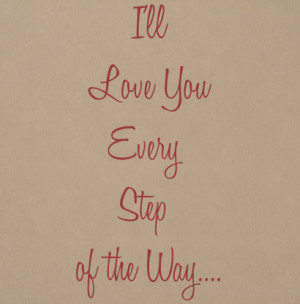 I'll
Love You
Every
Step
of the Way....